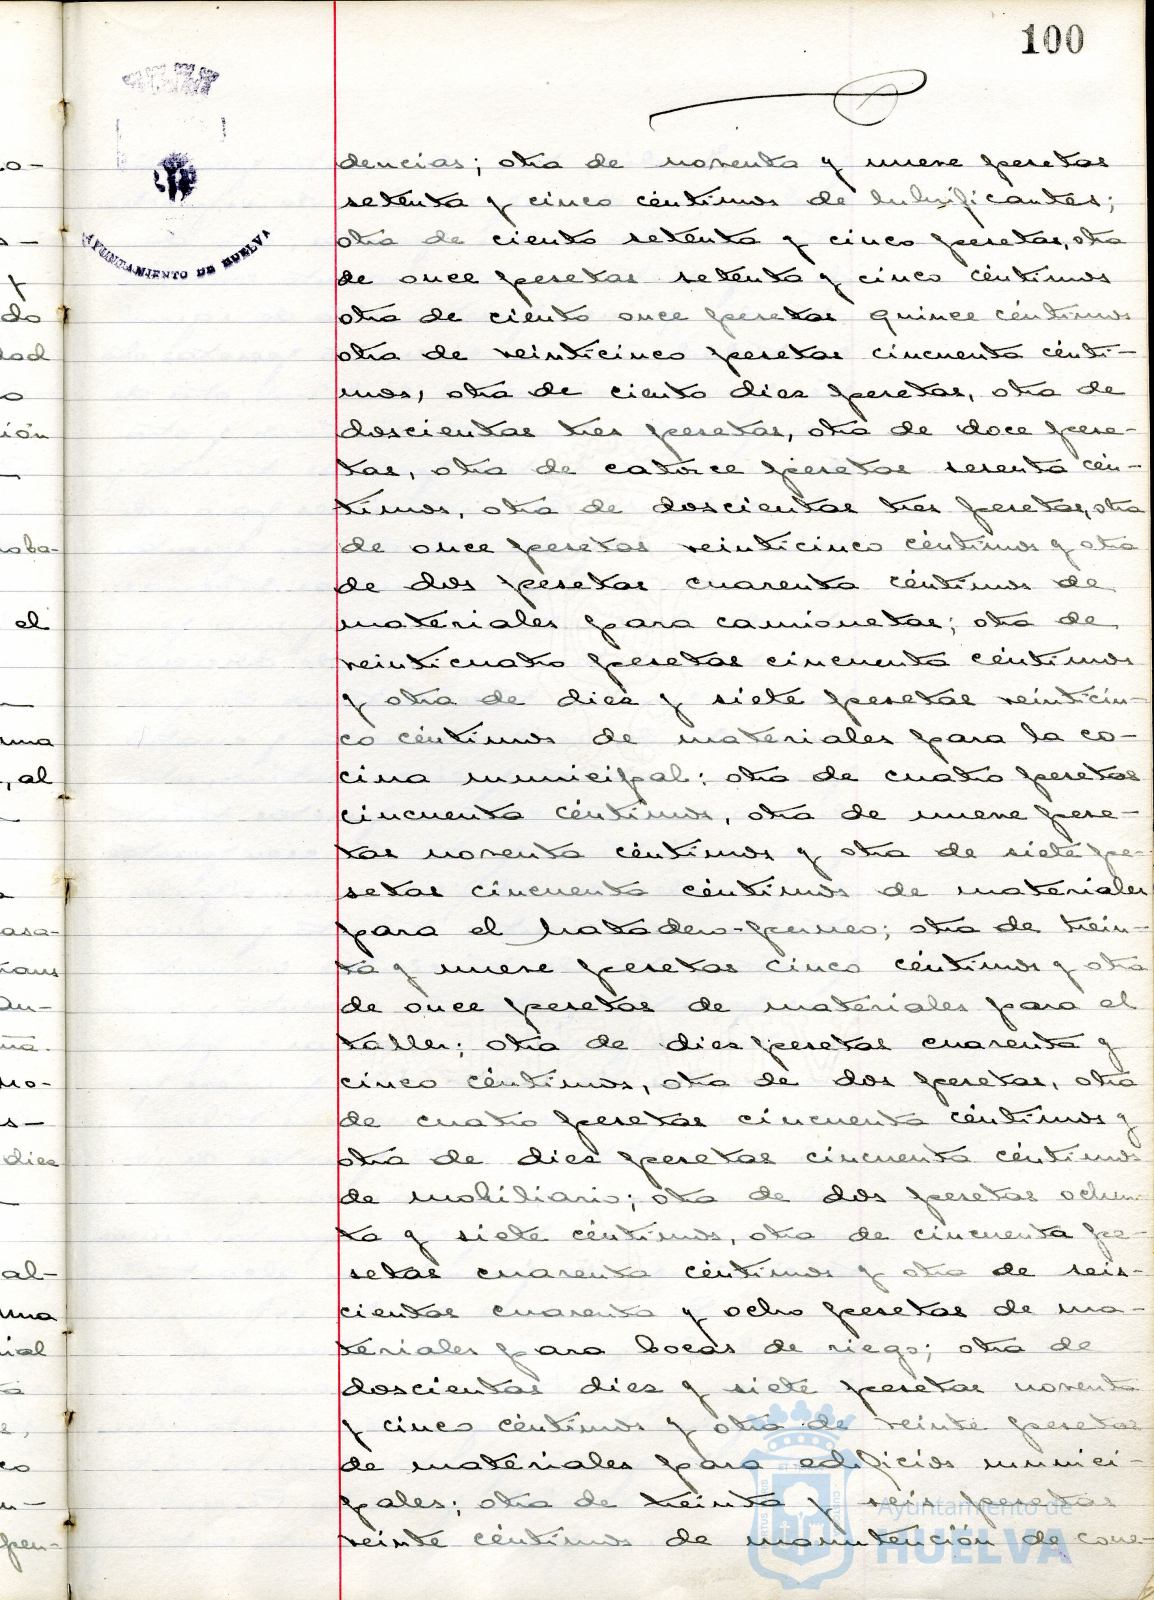 100
AYUNTAMIENTO DE HUELVA
dencias; otra de noventa y nueve pesetas
setenta y cinco céntimos de lubrificantes;
otra de ciento setenta y cinco pesetas, otra
de once pesetas setenta y cinco céntimos
otra de ciento once pesetas quince céntimos
otra de veinticinco pesetas cincuenta cénti-
mos, otra de ciento diez pesetas, otra de
doscientas tres pesetas, otra de doce pese-
tas, otra de catorce pesetas sesenta cén-
timos, otra de doscientas tres pesetas, otra
de once pesetas veinticinco céntimos y otra
de dos pesetas cuarenta céntimos de
materiales para camionetas; otra de
veinticuatro pesetas cincuenta céntimos
y otra de diez y siete pesetas veinticin-
co céntimos de materiales para la co-
cina municipal; otra de cuatro pesetas
cincuenta céntimos, otra de nueve pese-
tas noventa céntimos y otra de siete pe-
setas cincuenta céntimos de materiales
para el matadero-perneo; otra de trein-
ta y nueve pesetas cinco céntimos y otra
de once pesetas de materiales para el
taller; otra de diez pesetas cuarenta y
cinco céntimos, otra de dos pesetas, otra
de cuatro pesetas cincuenta céntimos y
otra de diez pesetas cincuenta céntimos
de mobiliario; otra de dos pesetas ochen-
ta y siete céntimos, otra de cincuenta pe-
setas cuarenta céntimos y otra de seis-
cientas cuarenta y ocho pesetas de ma-
teriales para bocas de riego; otra de
doscientas diez y siete pesetas noventa
y cinco céntimos y otra de veinte pesetas
de materiales para edificios munici-
pales; otra de treinta y seis pesetas
veinte céntimos de manutención de cone-
Ayuntamiento de
HUELVA